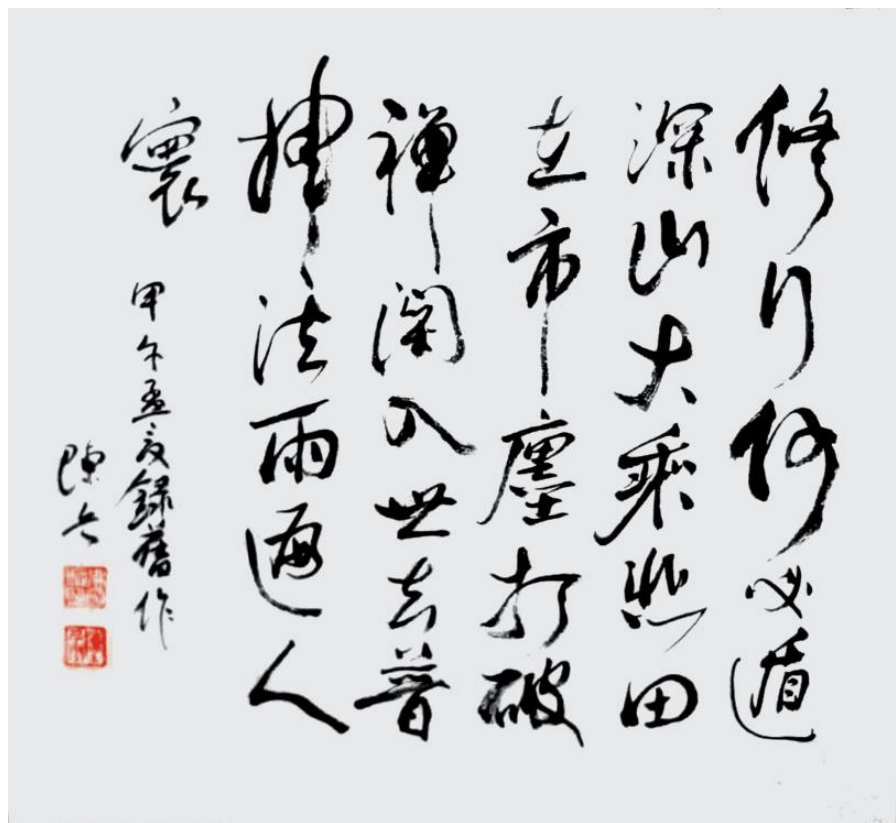 修行何必遁
深山大乘悲田
在市廛打破
禪関入世去普
揮法雨遍人
寰
甲午孟夏錄舊作
陳兵